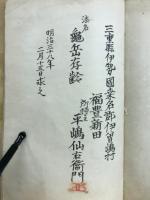 三重縣伊勢國桑名郡伊曽嶋村
福豊新田
所持主
平嶋仙右衛門
法名
龜岳存齢
明治三十八年
二月十五日求之